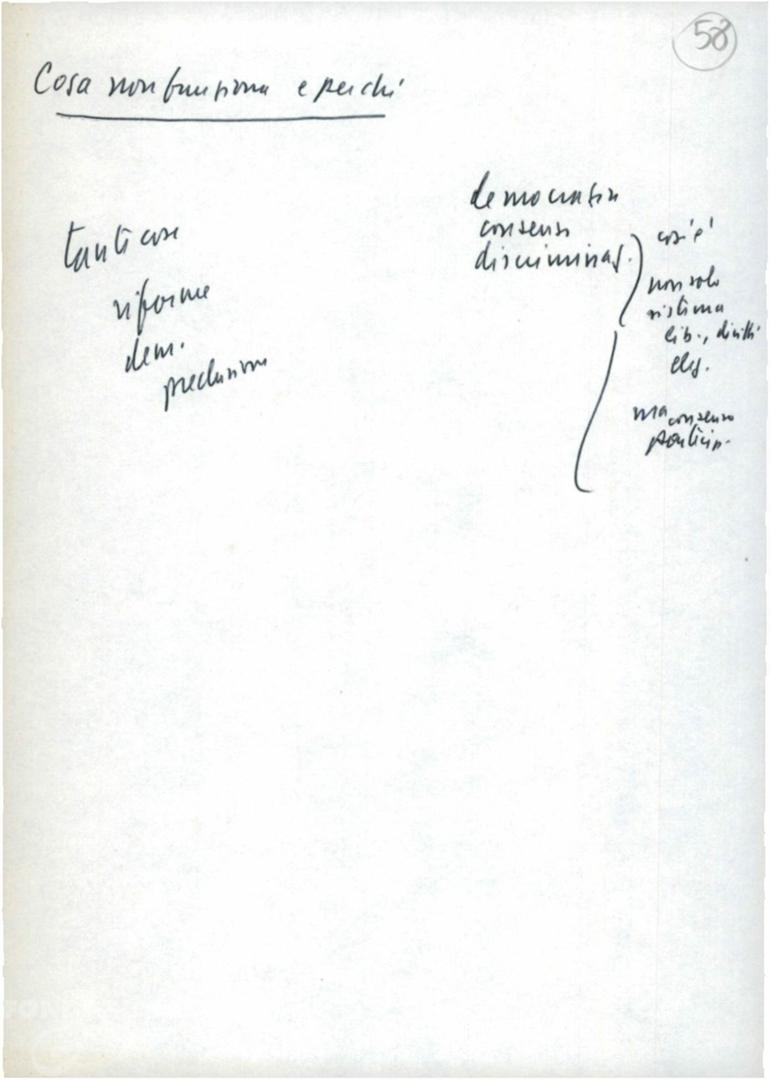 58
Cosa non funziona e perché
tante cose
riforme
dem.
preclusioni
democrazia
consenso
discriminaz.
cos'è
non solo
sistema
lib., diritti
eleg.
ma consenso
partecip.